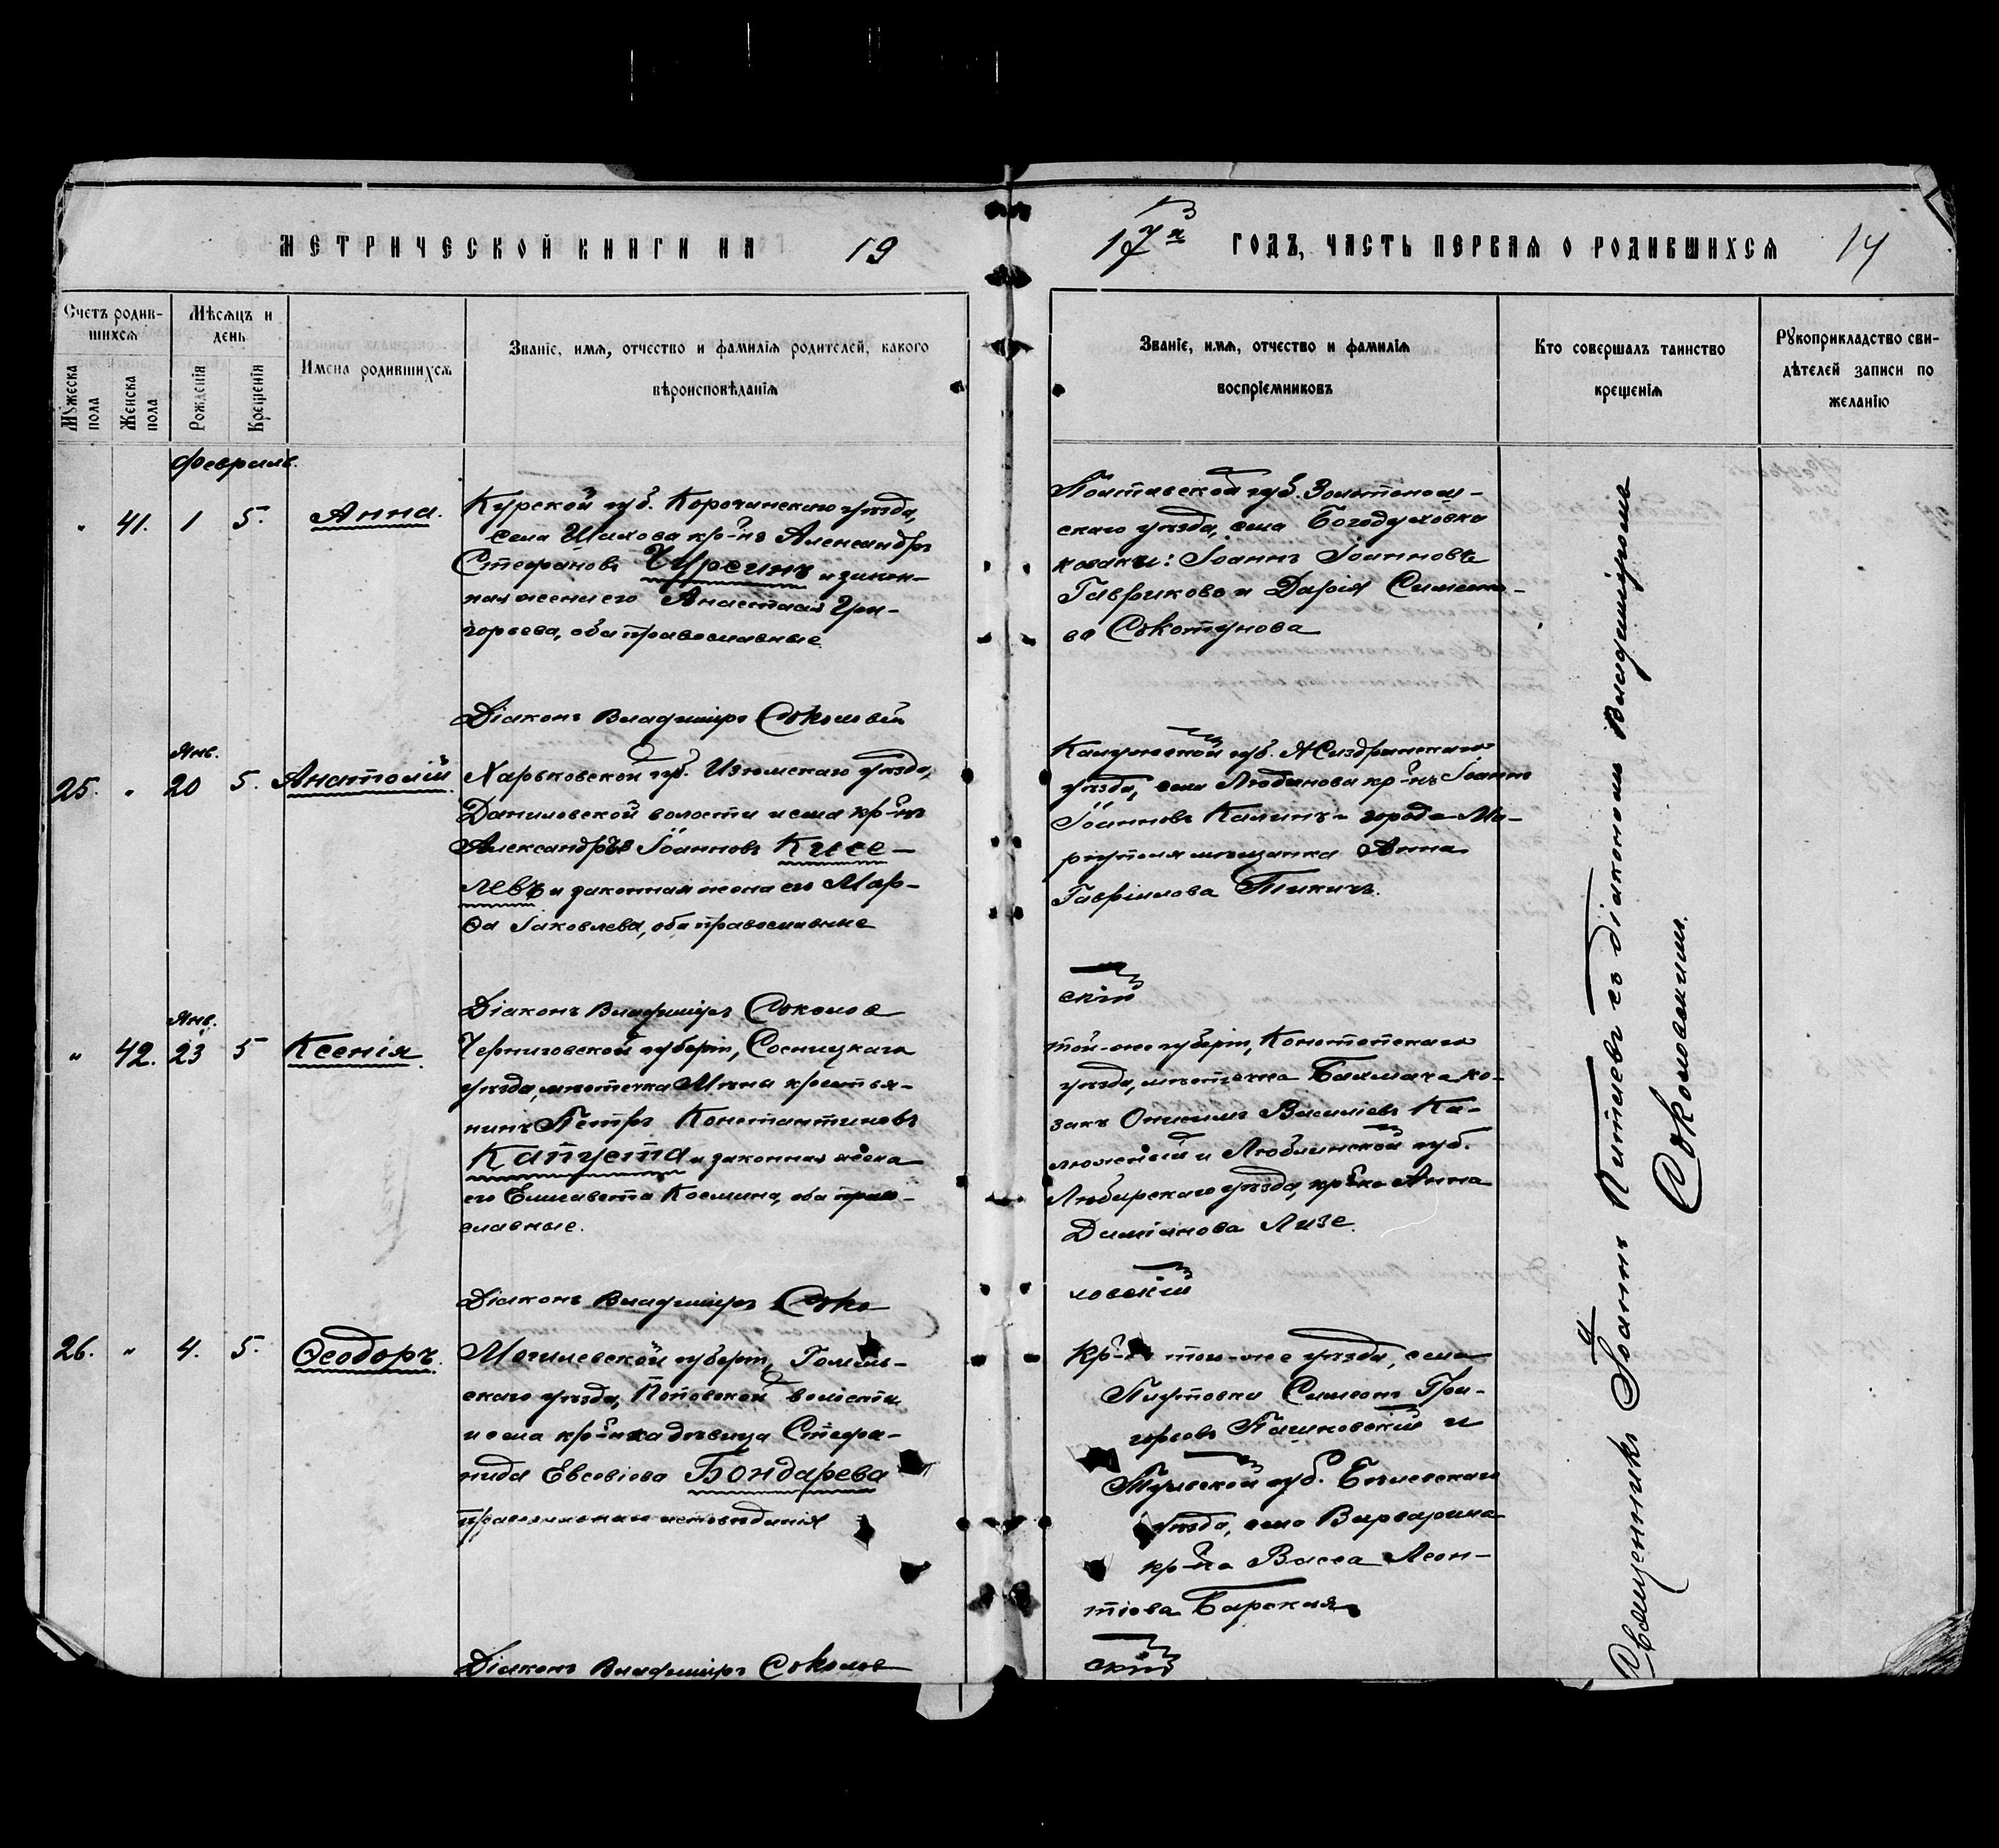 МЕТРИЧЕСКОЙ КНИГИ НА 19
17й ГОДЪ, ЧАСТЬ ПЕРВАЯ О РОДИВШИХСЯ 14
Счетъ родив-
шихся
Мужеска пола
Женска пола
Мѣсяцъ и
день
Рожденія
Крещенія
Имена родившихся
Званіе, имя, отчество и фамилія родителей, какого
вѣроисповѣданія
Званіе, имя, отчество и фамилія
воспріемниковъ
Кто совершалъ таинство
крещенія
Рукоприкладство сви-
дѣтелей записи по
желанію
Февраль.
" 41. 1 5. Анна.
Курской губ. Корочанскаго уѣзда,
села кр-нъ Александръ
Стефановъ Чурсинъ и закон-
ная жена его Анастасія Гри-
горьева, оба православные
Полтавской губ. Золотонош-
скаго уѣзда, села Богодуховка
козаки: Іоаннъ Іоанновъ
Гавриковъ и Дарія Симено-
ва Сокотунова
Діаконъ Владиміръ Соколовскій
Янв.
25. " 20 5. Анатолій
Харьковской губ. Изюмскаго уѣзда,
Даниловской волости и села кр-нъ
Александръ Іоанновъ Кисе-
левъ и законная жена его Мар-
ѳа Іаковлева, оба православные
Калужской губ. Жиздринскаго
уѣзда, села Людинова кр-нъ Іоаннъ
Іоанновъ Калинъ и города Ма-
риуполя мѣщанка Анна
Гавріилова
Діаконъ Владиміръ Соколов
скій
Янв.
" 42. 23 5 Ксенія.
Черниговской губерніи, Сосницкаго
уѣзда, мѣстечка Мѣна крестья-
нинъ Петръ Константиновъ
Капуста и законная жена
его Елисавета Космина, оба право-
славные.
той-же губерніи, Конотопскаго
уѣзда, мѣстечка Бахмача ко-
закъ Онисимъ Василіевъ Ка-
и Люблинской губ.
уѣзда, кр-ка Анна
Даміанова Лизе.
Діаконъ Владиміръ Соко
ловскій
26. " 4. 5. Ѳеодоръ.
Могилевской губерніи, Гомель-
скаго уѣзда, Поповской волости
и села кр-нка дѣвица Стефа-
нида Евсевіева Бондарева
православнаго исповѣданія
Кр-не того-же уѣзда, села
Симеонъ Гри-
горьевъ Пашковскій и
Тульской губ. Бѣлевскаго
уѣзда, села
кр-ка Васса Леон-
тіева Барская
Діаконъ Владиміръ Соколов
скій
Священникъ Іоаннъ съ діакономъ Владиміромъ
Соколовскимъ.